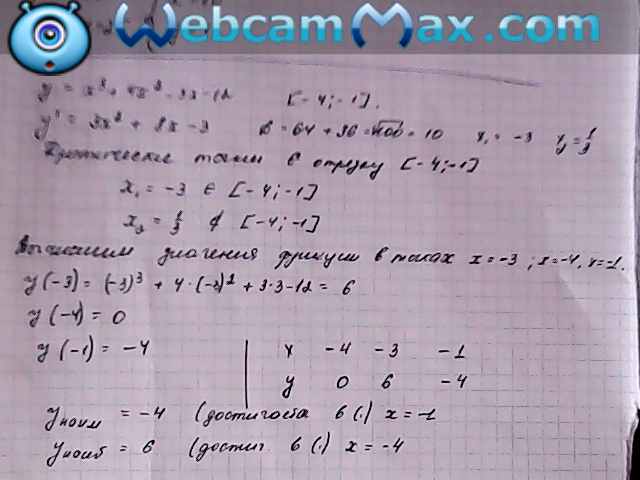 WebcamMax.com
y = x³ + 4x² - 3x - 12 [-4; -1].
y' = 3x² + 8x - 3 D = 64 + 36 = √100 = 10 x₁ = -3 x₂ = 1/3
Критические точки ∈ отрезку [-4; -1]
x₁ = -3 ∈ [-4; -1]
x₂ = 1/3 ∉ [-4; -1]
Вычислим значения функции в точках x = -3; x = -4, x = -1.
y(-3) = (-3)³ + 4·(-3)² + 3·3 - 12 = 6
y(-4) = 0
y(-1) = -4 x -4 -3 -1
y 0 6 -4
y наим = -4 (достигается в (·) x = -1
y наиб = 6 (достиг. в (·) x = -4